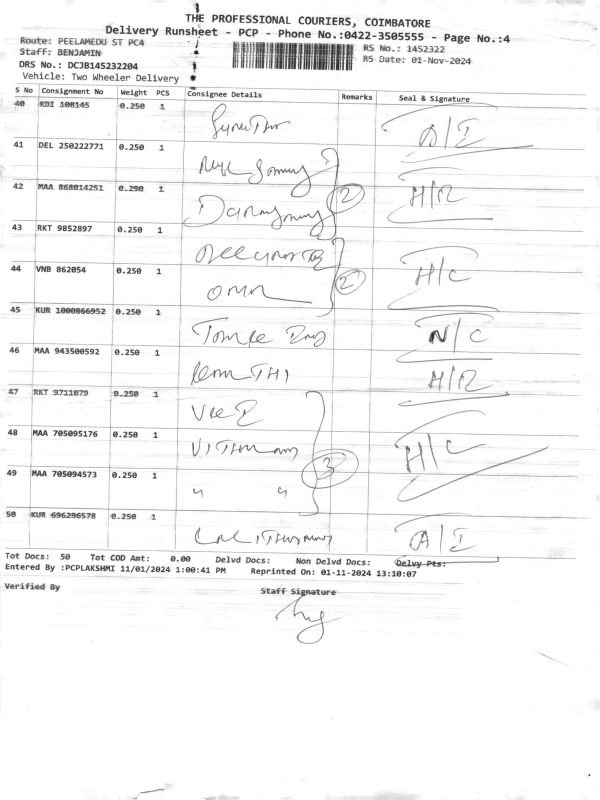 THE PROFESSIONAL COURIERS, COIMBATORE
Delivery Runsheet - PCP - Phone No.:0422-3505555 - Page No.:4
Route: PEELAMEDU ST PC4 RS No.: 1452322
Staff: BENJAMIN RS Date: 01-Nov-2024
DRS No.: DCJB145232204
Vehicle: Two Wheeler Delivery
S No Consignment No Weight PCS Consignee Details Remarks Seal & Signature
40 KDI 108145 0.250 1
A/I
41 DEL 250222771 0.250 1
42 MAA 868014251 0.290 1 2 H/R
43 RKT 9852897 0.250 1
44 VNB 862054 0.250 1 2 H/C
45 KUR 1000866952 0.250 1
N/C
46 MAA 943500592 0.250 1
H/R
47 RKT 9711079 0.250 1
48 MAA 705095176 0.250 1 3 H/C
49 MAA 705094573 0.250 1
" "
50 KUR 696296578 0.250 1
A/I
Tot Docs: 50 Tot COD Amt: 0.00 Delvd Docs: Non Delvd Docs: Delvy Pts:
Entered By :PCPLAKSHMI 11/01/2024 1:00:41 PM Reprinted On: 01-11-2024 13:10:07
Verified By Staff Signature